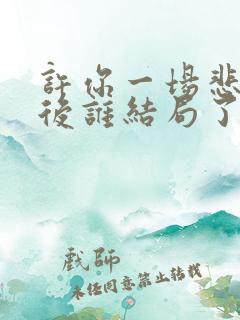 許你一場悲
後誰結局了
戲師
未經同意禁止轉載